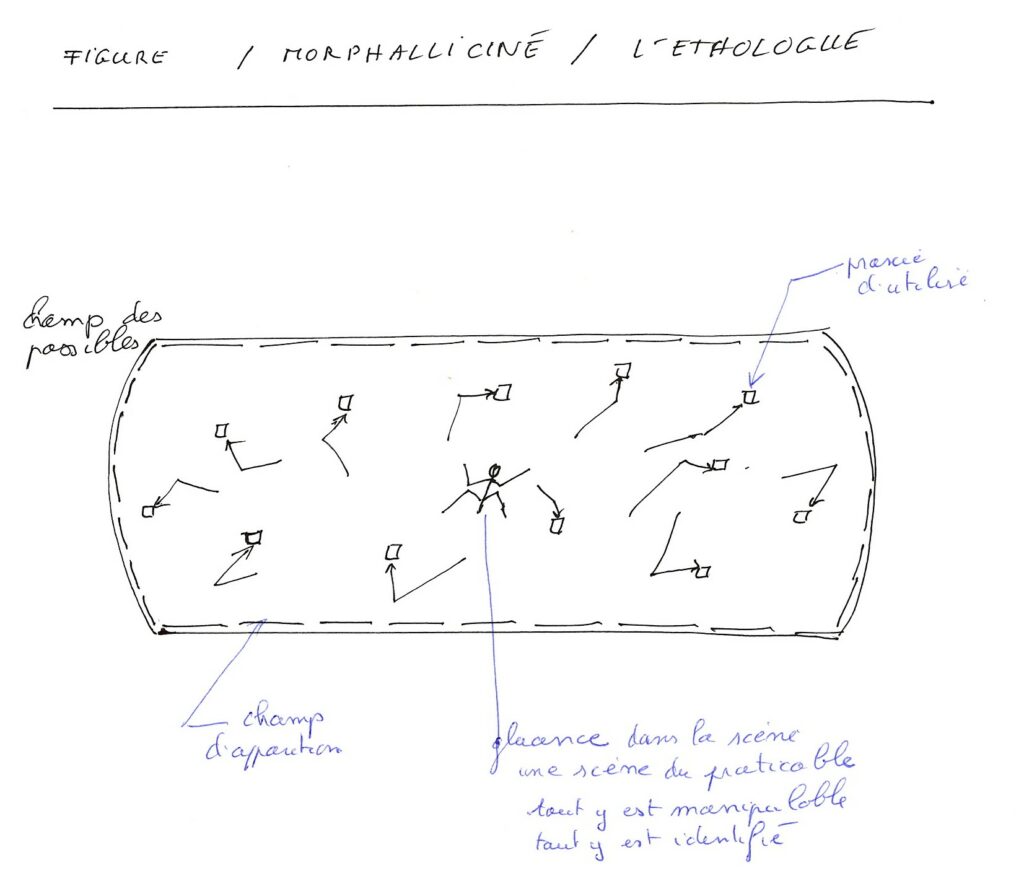 FIGURE / MORPHALLICINÉ / L'ETHOLOGUE
praxie
d'utilisé
champ des
possibles
champ
d'apparition
dans la scène
une scène du praticable
tout y est manipulable
tout y est identifié